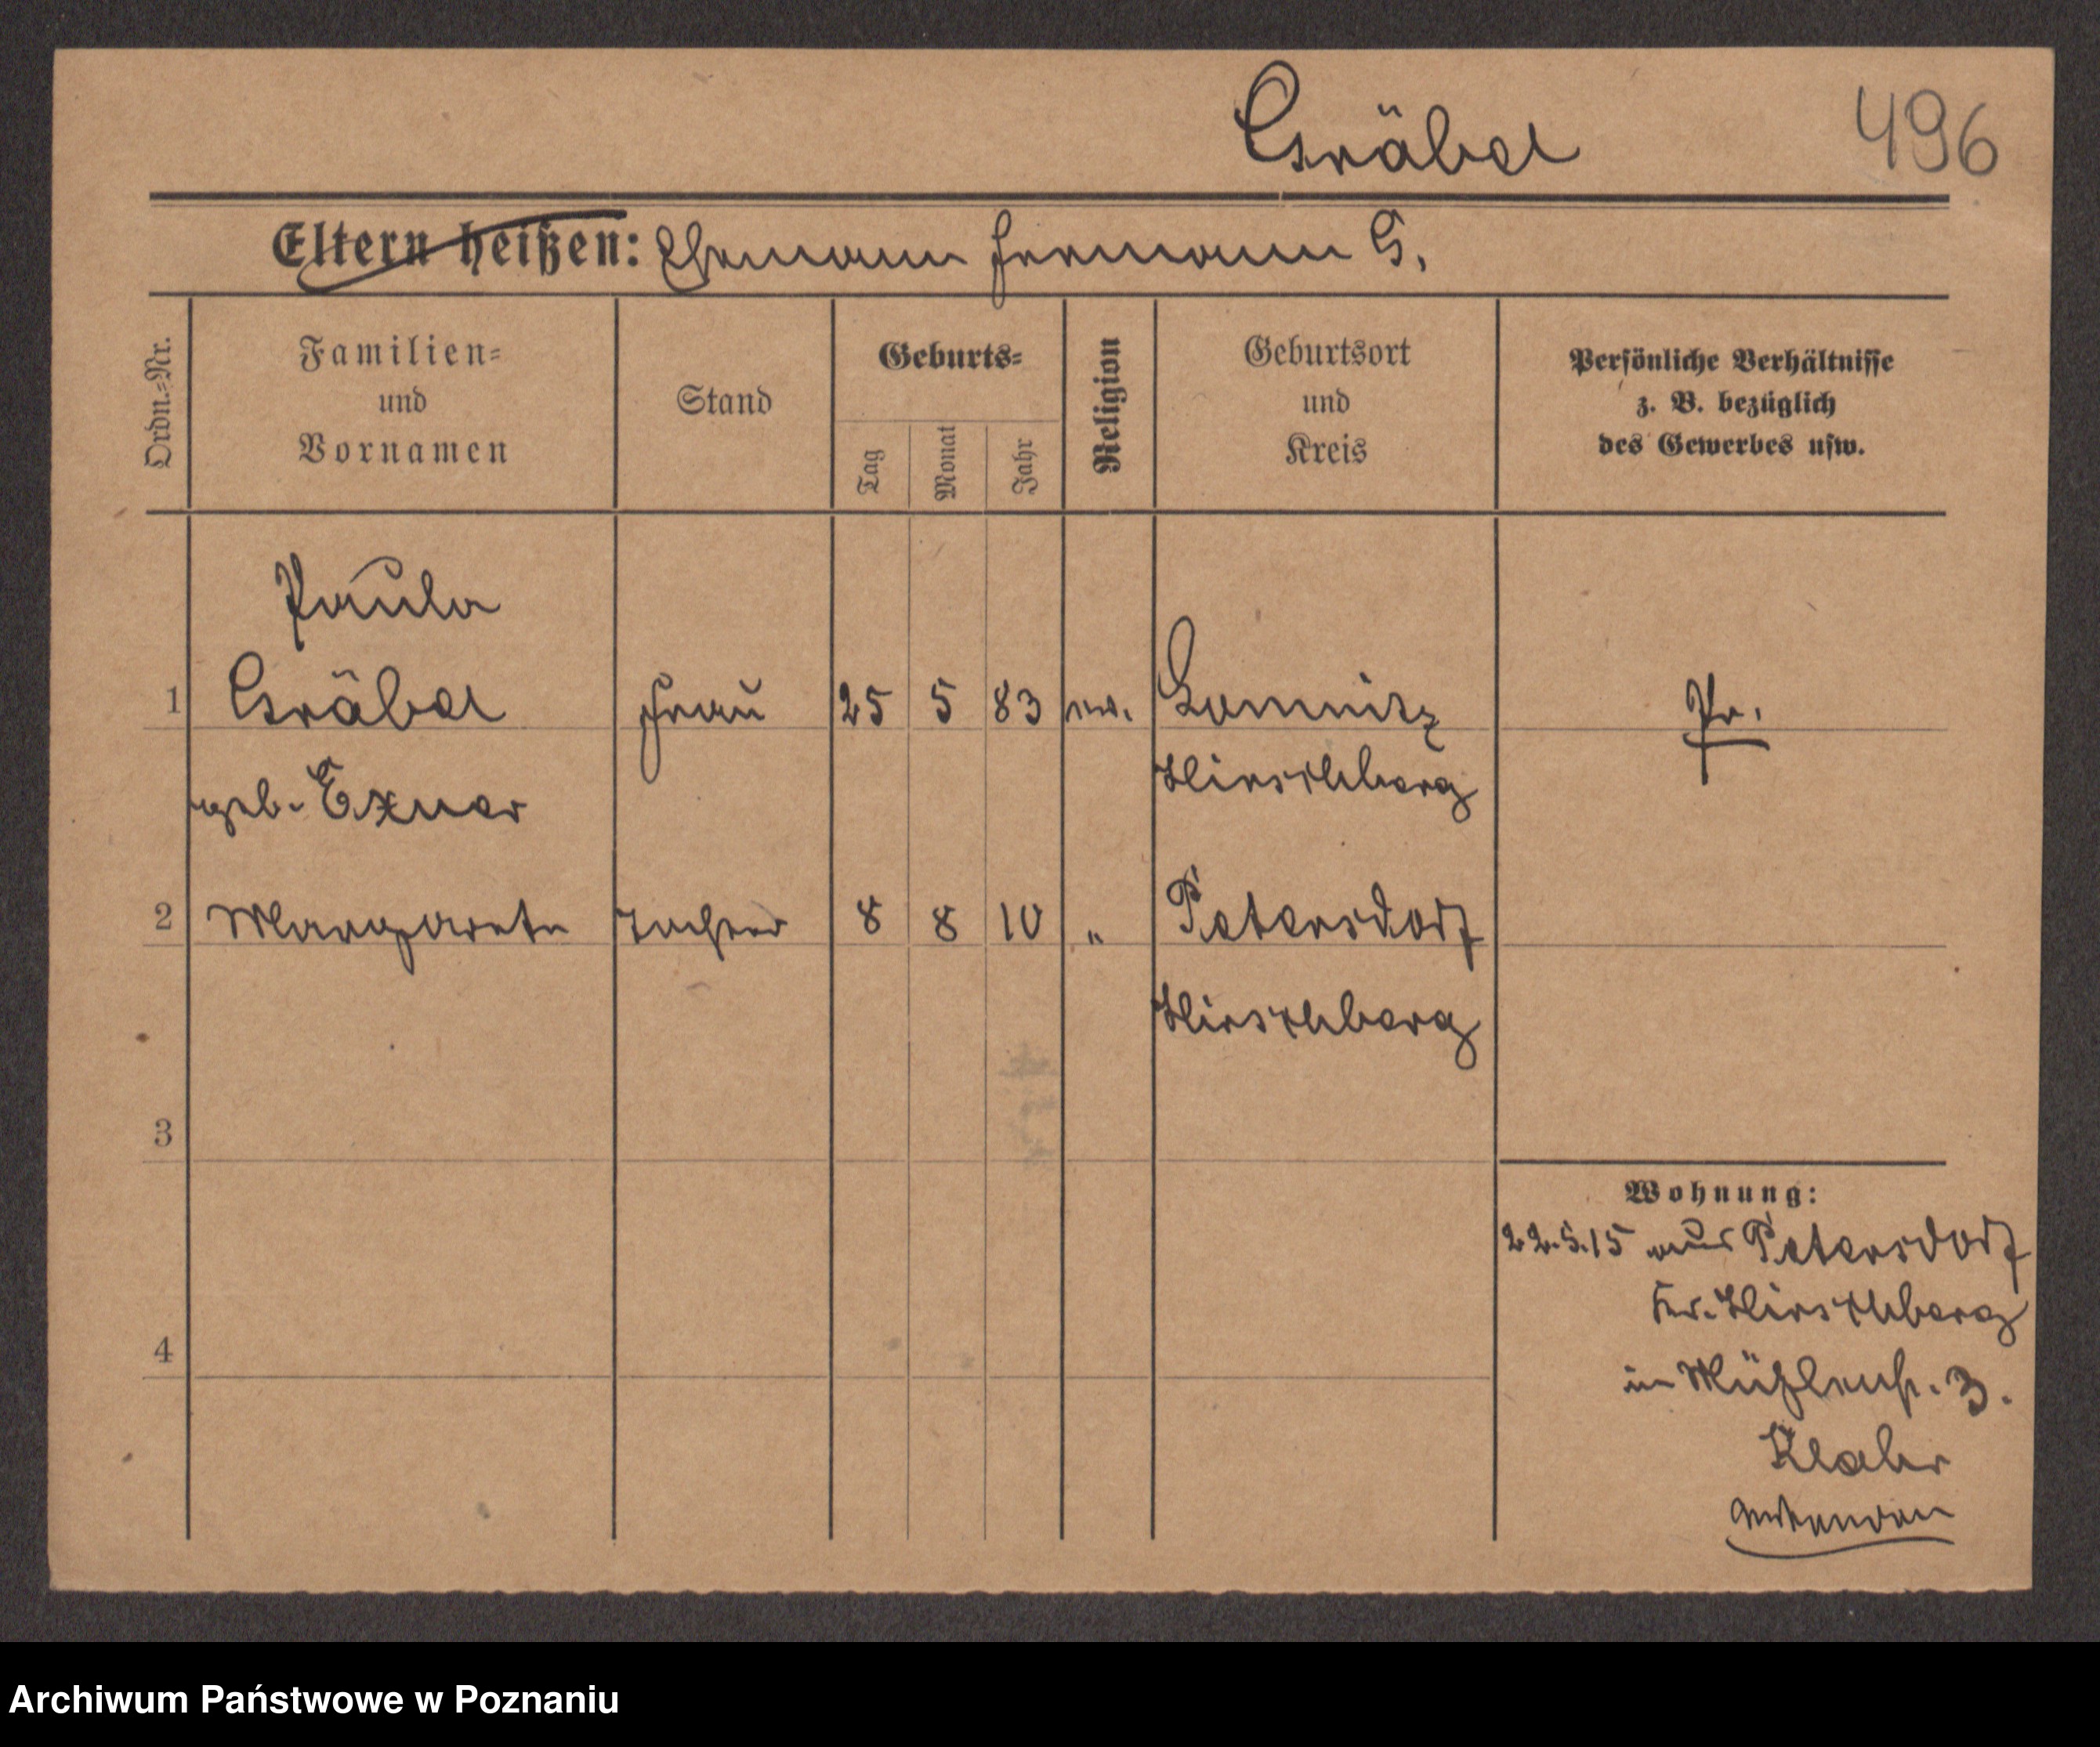 Gräbel 496
Eltern heißen: Ehemann Hermann G.
Ordn.-Nr.
Familien-
und
Vornamen
Stand
Geburts-
Tag
Monat
Jahr
Religion
Geburtsort
und
Kreis
Persönliche Verhältnisse
z. B. bezüglich
des Gewerbes usw.
Paula
1 Gräbel Frau 25 5 83 ev. Lomnitz Pr.
Hirschberg
geb. Exner
2 Margarete Tochter 8 8 10 " Petersdorf
Hirschberg
3
Wohnung:
22.5.15 aus Petersdorf
Kr. Hirschberg
4
in Mühlenstr. 3.
Klahr
Archiwum Państwowe w Poznaniu